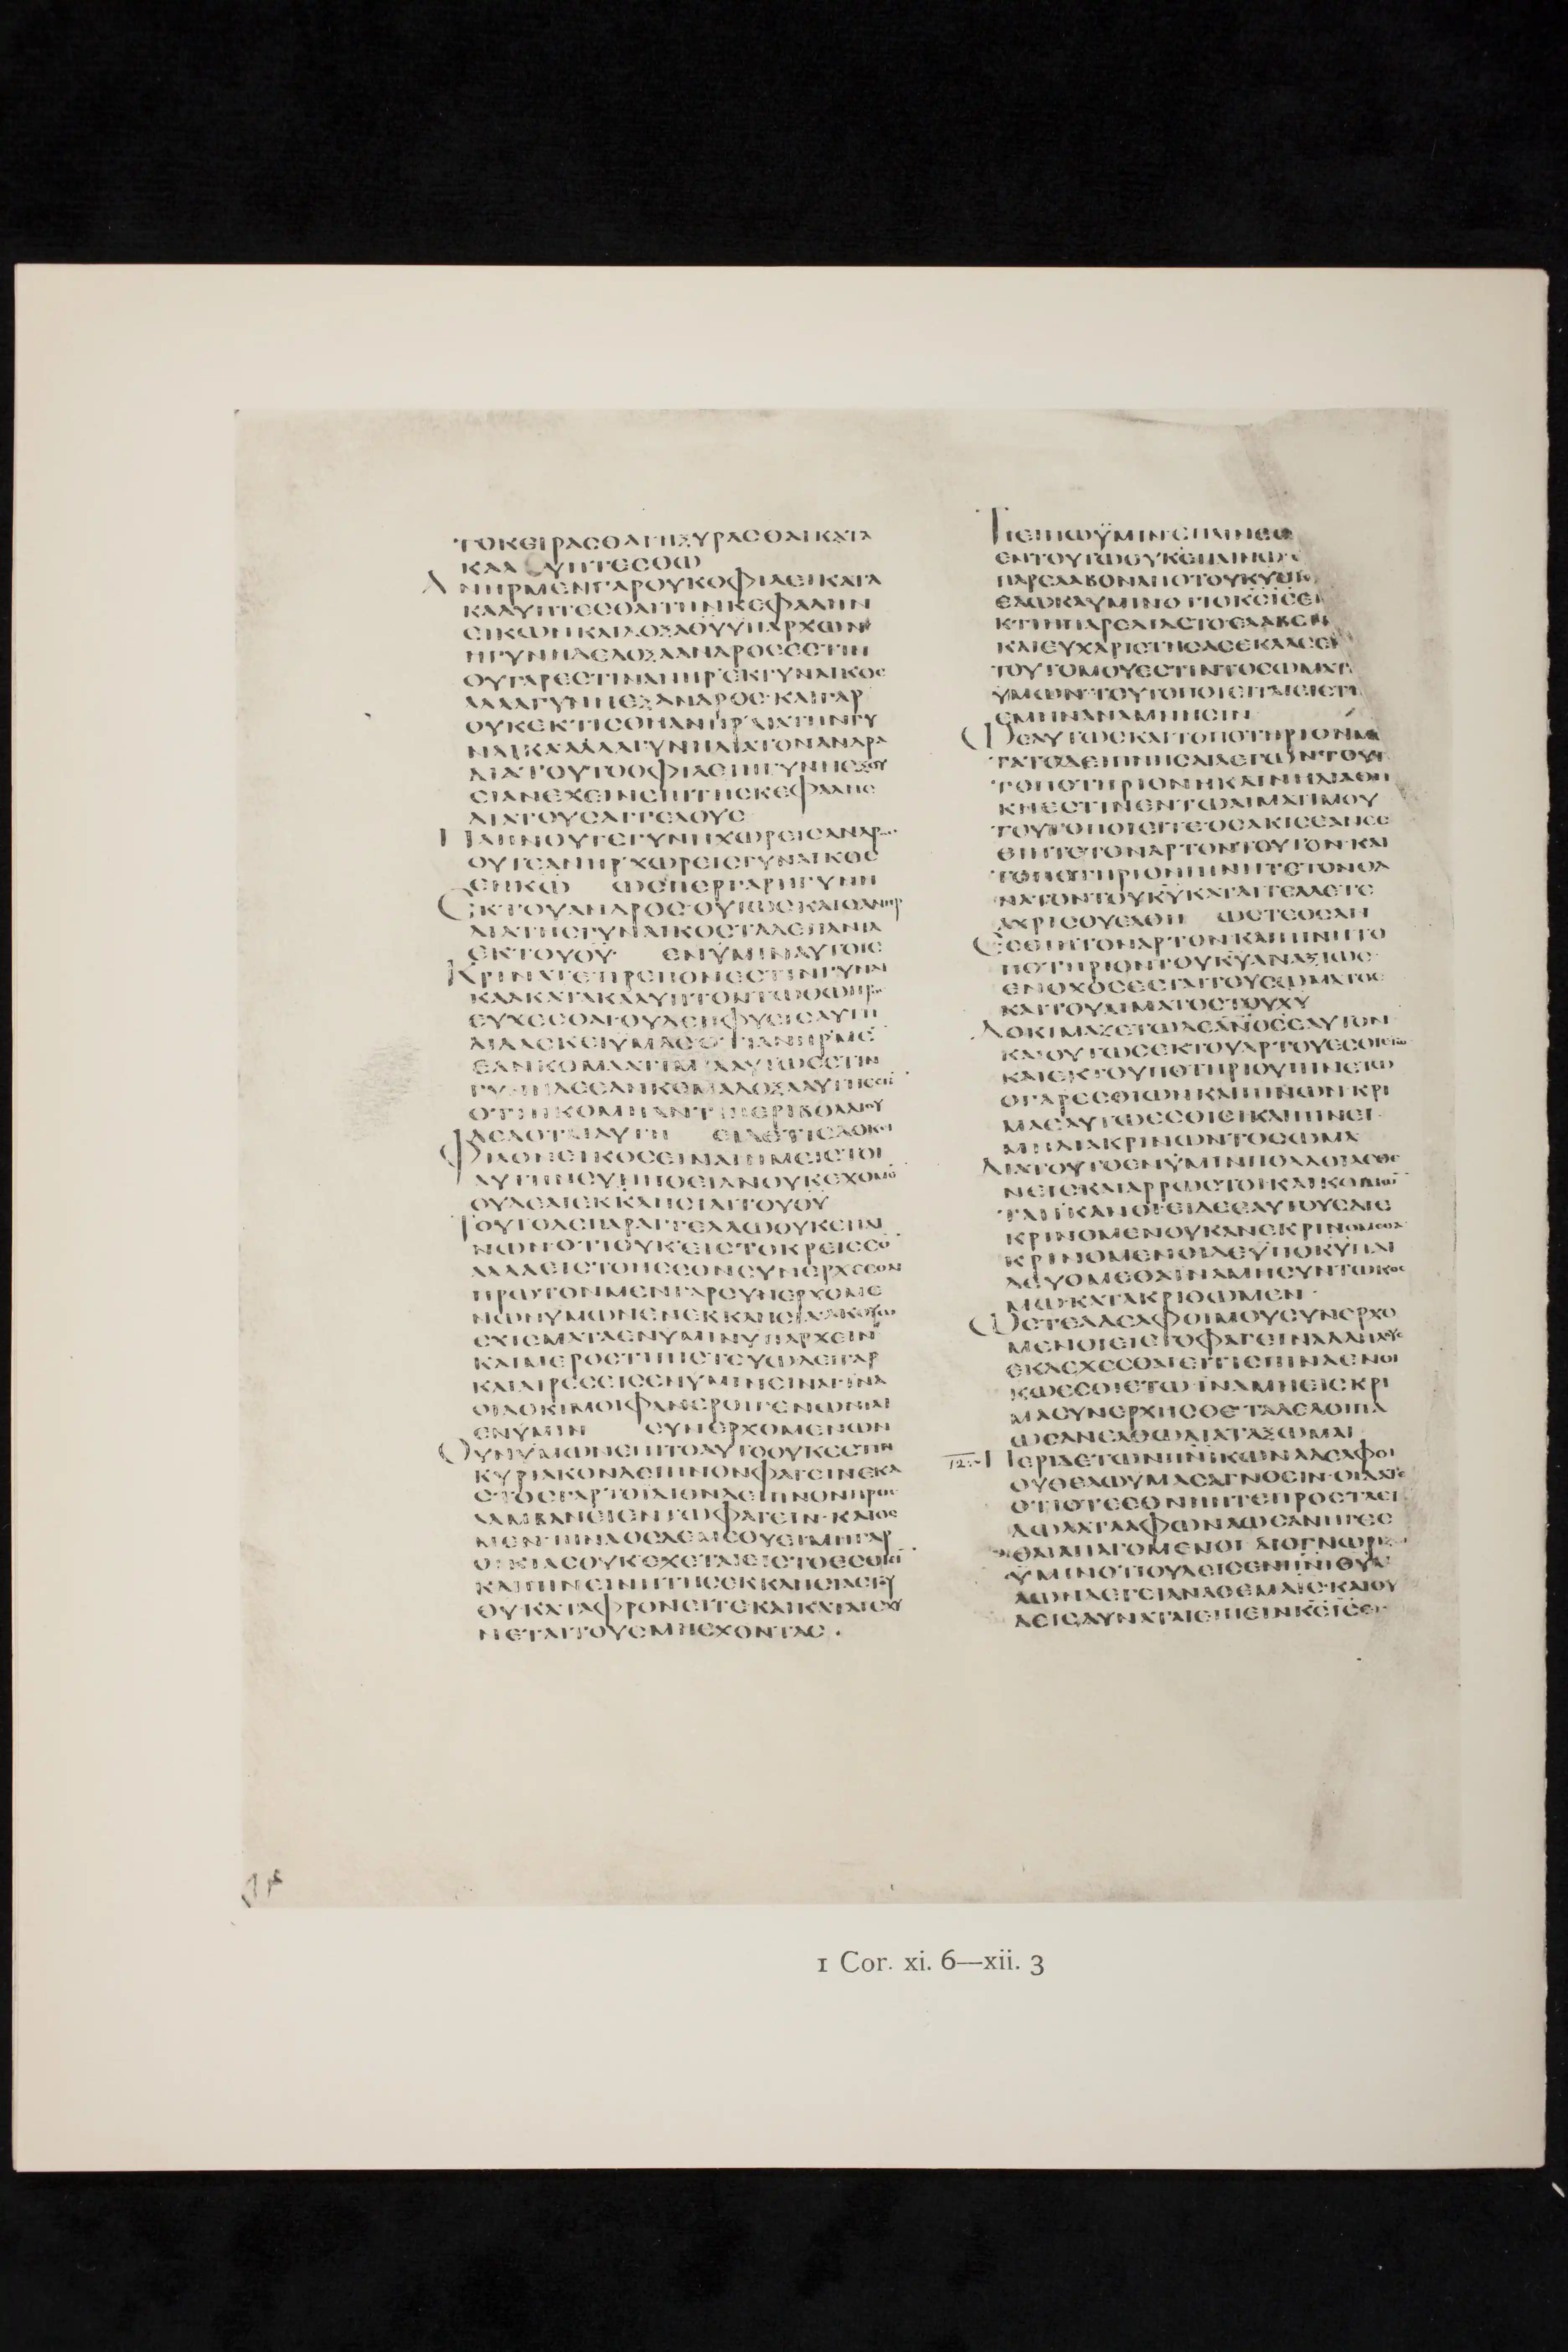 ΤΟΚΕΙΡΑϹΘΑΙΗΞΥΡΑϹΘΑΙΚΑΤΑ
ΚΑΛΥΠΤΕϹΘΩ
ΑΝΗΡΜΕΝΓΑΡΟΥΚΟΦΙΛΕΙΚΑΤΑ
ΚΑΛΥΠΤΕϹΘΑΙΤΗΝΚΕΦΑΛΗΝ
ΕΙΚΩΝΚΑΙΔΟΞΑΘΥΥΠΑΡΧΩΝ
ΗΓΥΝΗΔΕΔΟΞΑΑΝΔΡΟϹΕϹΤΙΝ
ΟΥΓΑΡΕϹΤΙΝΑΝΗΡΕΚΓΥΝΑΙΚΟϹ
ΑΛΛΑΓΥΝΗΕΞΑΝΔΡΟϹ·ΚΑΙΓΑΡ
ΟΥΚΕΚΤΙϹΘΗΑΝΗΡΔΙΑΤΗΝΓΥ
ΝΑΙΚΑΑΛΛΑΓΥΝΗΔΙΑΤΟΝΑΝΔΡΑ
ΔΙΑΤΟΥΤΟΟΦΙΛΕΙΗΓΥΝΗΕΞΟΥ
ϹΙΑΝΕΧΕΙΝΕΠΙΤΗϹΚΕΦΑΛΗϹ
ΔΙΑΤΟΥϹΑΓΓΕΛΟΥϹ
ΠΛΗΝΟΥΤΕΓΥΝΗΧΩΡΕΙϹΑΝΔΡ
ΟΥΤΕΑΝΗΡΧΩΡΕΙϹΓΥΝΑΙΚΟϹ
ΕΝΚΩ ΩϹΠΕΡΓΑΡΗΓΥΝΗ
ΕΚΤΟΥΑΝΔΡΟϹ·ΟΥΤΩϹΚΑΙΟΑΝΗΡ
ΔΙΑΤΗϹΓΥΝΑΙΚΟϹΤΑΔΕΠΑΝΤΑ
ΕΚΤΟΥΘΥ· ΕΝΥΜΙΝΑΥΤΟΙϹ
ΚΡΙΝΑΤΕΠΡΕΠΟΝΕϹΤΙΝΓΥΝΑΙ
ΚΑΑΚΑΤΑΚΑΛΥΠΤΟΝΤΩΘΩΠΡ
ΕΥΧΕϹΘΑΙ·ΟΥΔΕΗΦΥϹΙϹΑΥΤΗ
ΔΙΔΑϹΚΕΙΥΜΑϹΟΤΙΑΝΗΡΜΕ
ΕΑΝΚΟΜΑΑΤΙΜΙΑΑΥΤΩΕϹΤΙΝ
ΓΥΝΗΔΕΕΑΝΚΟΜΑΔΟΞΑΑΥΤΗΕϹΤΙ
ΟΤΙΗΚΟΜΗΑΝΤΙΠΕΡΙΒΟΛΑΙΟΥ
ΔΕΔΟΤΑΙΑΥΤΗ ΕΙΔΕΤΙϹΔΟΚΕΙ
ΦΙΛΟΝΕΙΚΟϹΕΙΝΑΙΗΜΕΙϹΤΟΙ
ΑΥΤΗΝϹΥΝΗΘΕΙΑΝΟΥΚΕΧΟΜΕ
ΟΥΔΕΑΙΕΚΚΛΗϹΙΑΙΤΟΥΘΥ
ΤΟΥΤΟΔΕΠΑΡΑΓΓΕΛΛΩΟΥΚΕΠΑΙ
ΝΩΝΟΤΙΟΥΚΕΙϹΤΟΚΡΕΙϹϹΟ
ΑΛΛΑΕΙϹΤΟΗϹϹΟΝϹΥΝΕΡΧΕϹΘΑΙ
ΠΡΩΤΟΝΜΕΝΓΑΡϹΥΝΕΡΧΟΜΕ
ΝΩΝΥΜΩΝΕΝΕΚΚΛΗϹΙΑΑΚΟΥΩ
ΕΧΙϹΜΑΤΑΕΝΥΜΙΝΥΠΑΡΧΕΙΝ
ΚΑΙΜΕΡΟϹΤΙΠΙϹΤΕΥΩΔΕΙΓΑΡ
ΚΑΙΑΙΡΕϹΕΙϹΕΝΥΜΙΝΕΙΝΑΙΙΝΑ
ΟΙΔΟΚΙΜΟΙΦΑΝΕΡΟΙΓΕΝΩΝΤΑΙ
ΕΝΥΜΙΝ ϹΥΝΕΡΧΟΜΕΝΩΝ
ΟΥΝΥΜΩΝΕΠΙΤΟΑΥΤΟΟΥΚΕϹΤΙΝ
ΚΥΡΙΑΚΟΝΔΕΙΠΝΟΝΦΑΓΕΙΝΕΚΑ
ϹΤΟϹΓΑΡΤΟΙΔΙΟΝΔΕΙΠΝΟΝΠΡΟϹ
ΛΑΜΒΑΝΕΙΕΝΤΩΦΑΓΕΙΝ·ΚΑΙΟϹ
ΜΕΝΠΙΝΑΟϹΔΕΜΕΘΥΕΙΜΗΓΑΡ
ΟΙΚΙΑϹΟΥΚΕΧΕΤΑΙΕΙϹΤΟΕϹΘΙΕΙ
ΚΑΙΠΙΝΕΙΝΗΤΗϹΕΚΚΛΗϹΙΑϹΤΟΥ
ΘΥΚΑΤΑΦΡΟΝΕΙΤΕΚΑΙΚΑΤΑΙϹΧΥ
ΝΕΤΑΙΤΟΥϹΜΗΕΧΟΝΤΑϹ·
ΤΙΕΙΠΩΫΜΙΝ·ΕΠΑΙΝΕϹΩ
ΕΝΤΟΥΤΩΟΥΚΕΠΑΙΝΩ
ΠΑΡΕΛΑΒΟΝΑΠΟΤΟΥΚΥ
ΕΔΩΚΑΥΜΙΝΟΤΙΟΚϹΙϹΕ
ΚΤΙΗΠΑΡΕΔΙΔΕΤΟΕΛΑΒΕΝ
ΚΑΙΕΥΧΑΡΙϹΤΗϹΑϹΕΚΛΑϹΕΝ
ΤΟΥΤΟΜΟΥΕϹΤΙΝΤΟϹΩΜΑ
ΫΜΩΝ·ΤΟΥΤΟΠΟΙΕΙΤΑΙΕΙϹΤΗ
ΕΜΗΝΑΝΑΜΝΗϹΙΝ
ΩϹΑΥΤΩϹΚΑΙΤΟΠΟΤΗΡΙΟΝΜΕ
ΤΑΤΟΔΕΙΠΝΗϹΑΙΛΕΓΩΝΤΟΥΤ
ΤΟΠΟΤΗΡΙΟΝΗΚΑΙΝΗΔΙΑΘΗ
ΚΗΕϹΤΙΝΕΝΤΩΑΙΜΑΤΙΜΟΥ
ΤΟΥΤΟΠΟΙΕΙΤΕΟϹΑΚΙϹΕΑΝΕϹ
ΘΙΗΤΕΤΟΝΑΡΤΟΝΤΟΥΤΟΝ·ΚΑΙ
ΤΟΠΟΤΗΡΙΟΝΠΙΝΗΤΕΤΟΝΘΑ
ΝΑΤΟΝΤΟΥΚΥΚΑΤΑΓΓΕΛΛΕΤΕ
ΑΧΡΙϹΟΥΕΛΘΗ ΩϹΤΕΟϹΑΝ
ΕϹΘΙΗΤΟΝΑΡΤΟΝΚΑΙΠΙΝΗΤΟ
ΠΟΤΗΡΙΟΝΤΟΥΚΥΑΝΑΞΙΩϹ·
ΕΝΟΧΟϹΕϹΤΑΙΤΟΥϹΩΜΑΤΟϹ
ΚΑΙΤΟΥΑΙΜΑΤΟϹΤΟΥΧΥ
ΔΟΚΙΜΑΖΕΤΩΔΕΑΝΟϹΕΑΥΤΟΝ
ΚΑΙΟΥΤΩϹΕΚΤΟΥΑΡΤΟΥΕϹΘΙΕΤΩ
ΚΑΙΕΚΤΟΥΠΟΤΗΡΙΟΥΠΙΝΕΤΩ
ΟΓΑΡΕϹΘΙΩΝΚΑΙΠΙΝΩΝ·ΚΡΙ
ΜΑΕΑΥΤΩΕϹΘΙΕΙΚΑΙΠΙΝΕΙ·
ΜΗΔΙΑΚΡΙΝΩΝΤΟϹΩΜΑ
ΔΙΑΤΟΥΤΟΕΝΫΜΙΝΠΟΛΛΟΙΑϹΘΕ
ΝΕΙϹΚΑΙΑΡΡΩϹΤΟΙ·ΚΑΙΚΟΙΜΩ
ΤΑΙΪΚΑΝΟΙ·ΕΙΔΕΕΑΥΤΟΥϹΔΙΕ
ΚΡΙΝΟΜΕΝΟΥΚΑΝΕΚΡΙΝΟΜΕΘΑ
ΚΡΙΝΟΜΕΝΟΙΔΕΫΠΟΚΥΠΑΙ
ΔΕΥΟΜΕΘΑΙΝΑΜΗϹΥΝΤΩΚΟϹ
ΜΩ·ΚΑΤΑΚΡΙΘΩΜΕΝ·
ΩϹΤΕΑΔΕΛΦΟΙΜΟΥϹΥΝΕΡΧΟ
ΜΕΝΟΙΕΙϹΤΟΦΑΓΕΙΝΑΛΛΗΛΟΥϹ
ΕΚΔΕΧΕϹΘΑΙΕΙΤΙϹΠΙΝΑΕΝΟΙ
ΚΩΕϹΘΙΕΤΩΪΝΑΜΗΕΙϹΚΡΙ
ΜΑϹΥΝΕΡΧΗϹΘΕ·ΤΑΔΕΛΟΙΠΑ
ΩϹΑΝΕΛΘΩΔΙΑΤΑΞΩΜΑΙ
ΠΕΡΙΔΕΤΩΝΠΝΙΚΩΝΑΔΕΛΦΟΙ
ΟΥΘΕΛΩΥΜΑϹΑΓΝΟΕΙΝ·ΟΙΔΑΤΕ
ΟΤΙΟΤΕΕΘΝΗΗΤΕΠΡΟϹΤΑΕΙ
ΔΩΛΑΤΑΑΦΩΝΑΩϹΑΝΗΓΕϹ
ΘΑΙΑΠΑΓΟΜΕΝΟΙ·ΔΙΟΓΝΩΡΙ
ΫΜΙΝΟΤΙΟΥΔΕΙϹΕΝΠΝΙΘΥΛΑ
ΛΩΝΛΕΓΕΙΑΝΑΘΕΜΑΙϹ·ΚΑΙΟΥ
ΔΕΙϹΔΥΝΑΤΑΙΕΙΠΕΙΝΚϹΙϹΕΙ
1 Cor. xi. 6—xii. 3